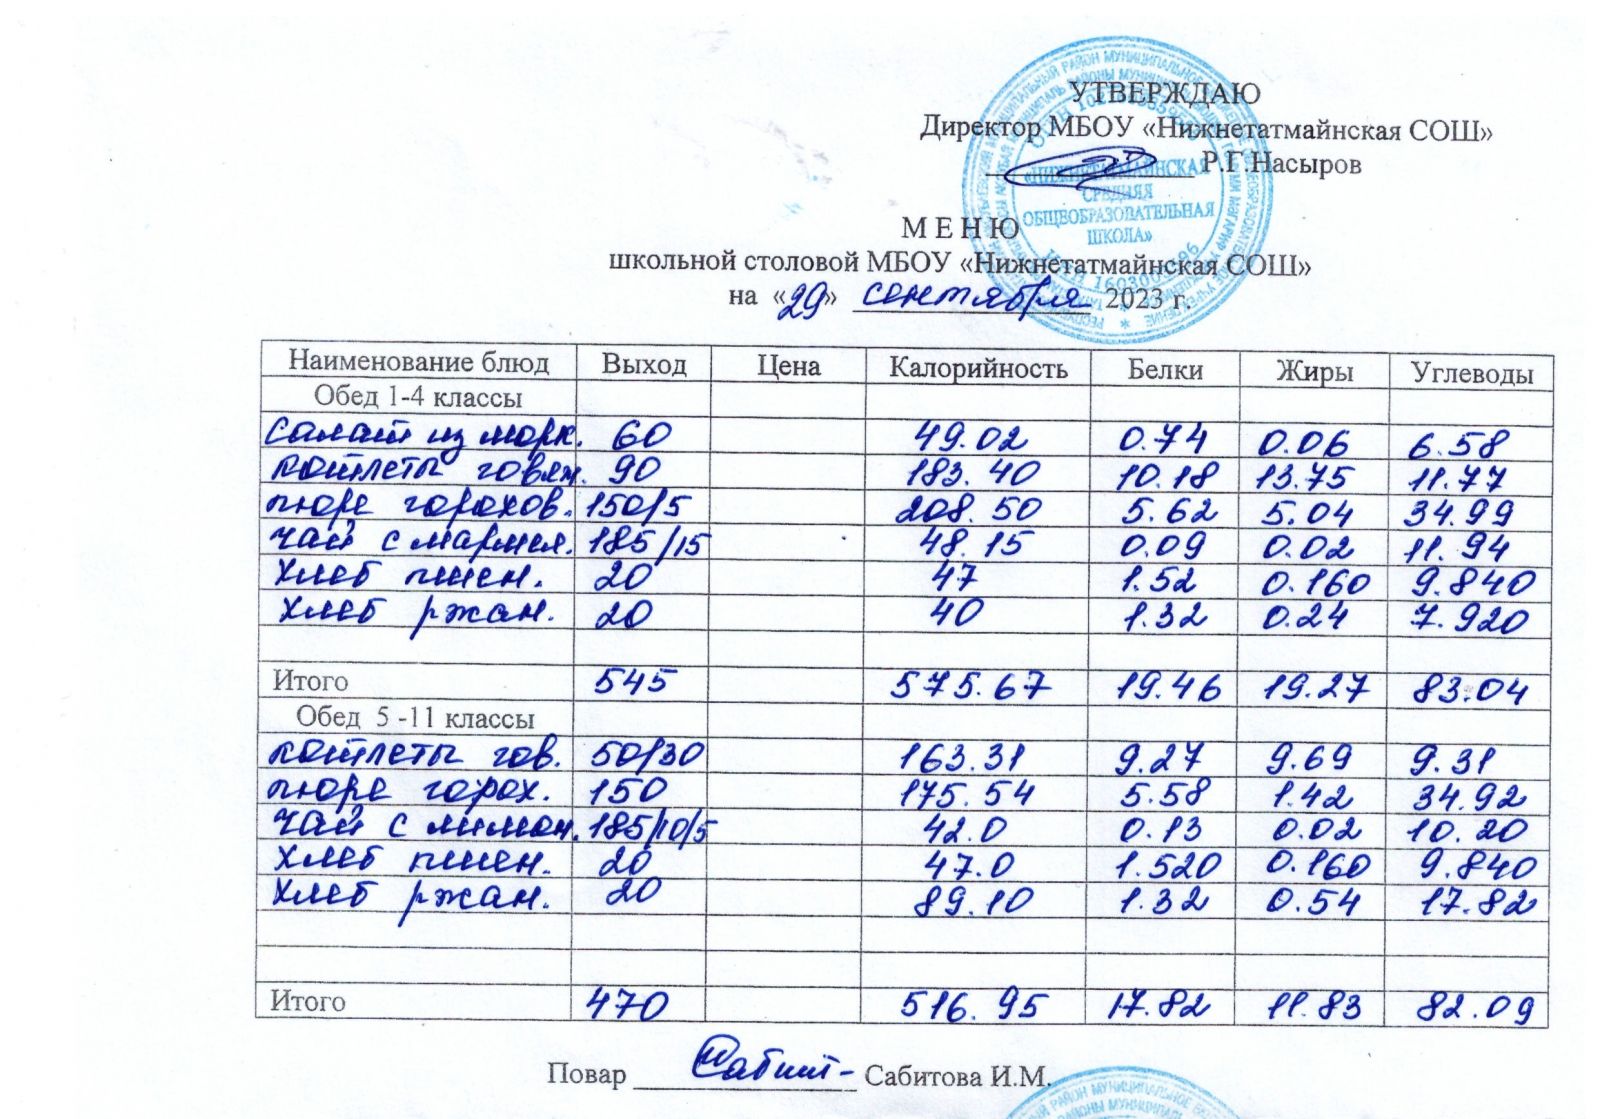 УТВЕРЖДАЮ
Директор МБОУ «Нижнетатмайнская СОШ»
Р.Г.Насыров
«НИЖНЕТАТМАЙНСКАЯ
СРЕДНЯЯ
ОБЩЕОБРАЗОВАТЕЛЬНАЯ
ШКОЛА»
М Е Н Ю
школьной столовой МБОУ «Нижнетатмайнская СОШ»
на «29» сентября 2023 г.
Наименование блюд Выход Цена Калорийность Белки Жиры Углеводы
Обед 1-4 классы
салат из морк. 60 49.02 0.74 0.06 6.58
котлеты говяж. 90 183.40 10.18 13.75 11.77
пюре горохов. 150/5 208.50 5.62 5.04 34.99
чай с мармел. 185/15 48.15 0.09 0.02 11.94
хлеб пшен. 20 47 1.52 0.160 9.840
хлеб ржан. 20 40 1.32 0.24 7.920
Итого 545 575.67 19.46 19.27 83.04
Обед 5 -11 классы
котлеты гов. 50/30 163.31 9.27 9.69 9.31
пюре горох. 150 175.54 5.58 1.42 34.92
чай с лимон. 185/10/5 42.0 0.13 0.02 10.20
хлеб пшен. 20 47.0 1.520 0.160 9.840
хлеб ржан. 20 89.10 1.32 0.54 17.82
Итого 470 516.95 17.82 11.83 82.09
Повар Сабит- Сабитова И.М.